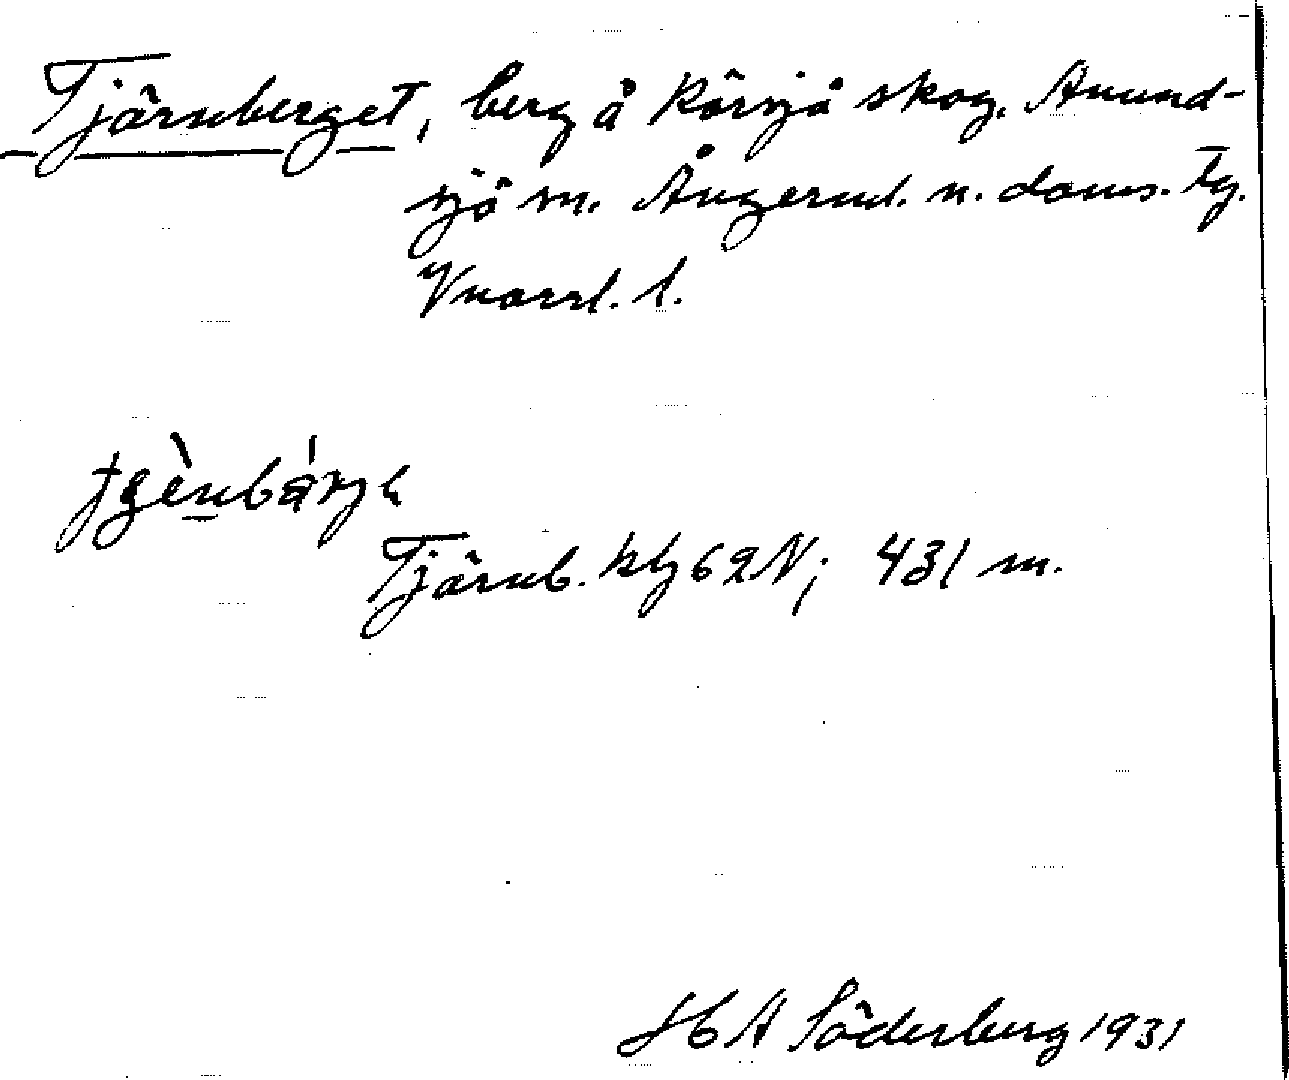 Tjärnberget, berg å Kärsjö skog, Anund-
sjö sn. Ångerml. n. doms. tg.
Vnorrl. l.
Tjärnb. kbl 62N; 431 m.
H A Söderberg 1931